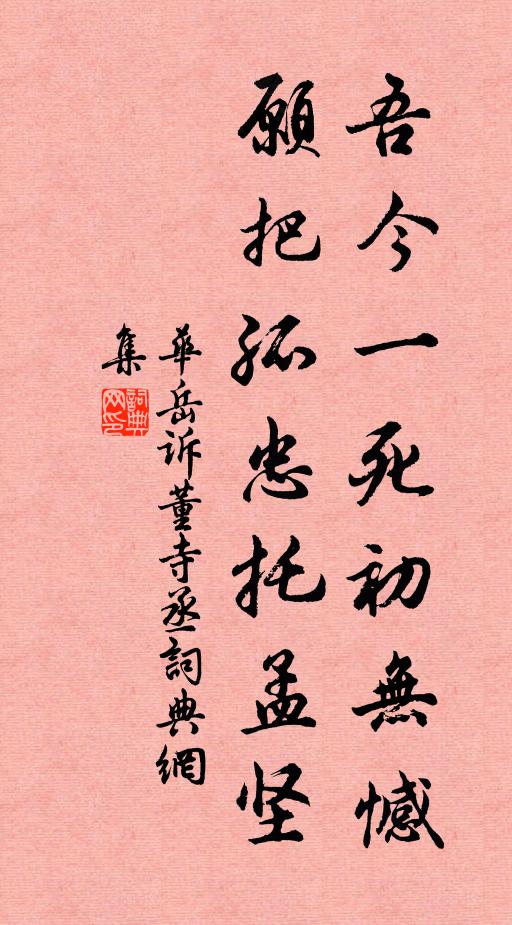 吾今一死初無憾
願把孤忠托孟坚
華岳诉董寺丞詞典網
集
詞典
网印